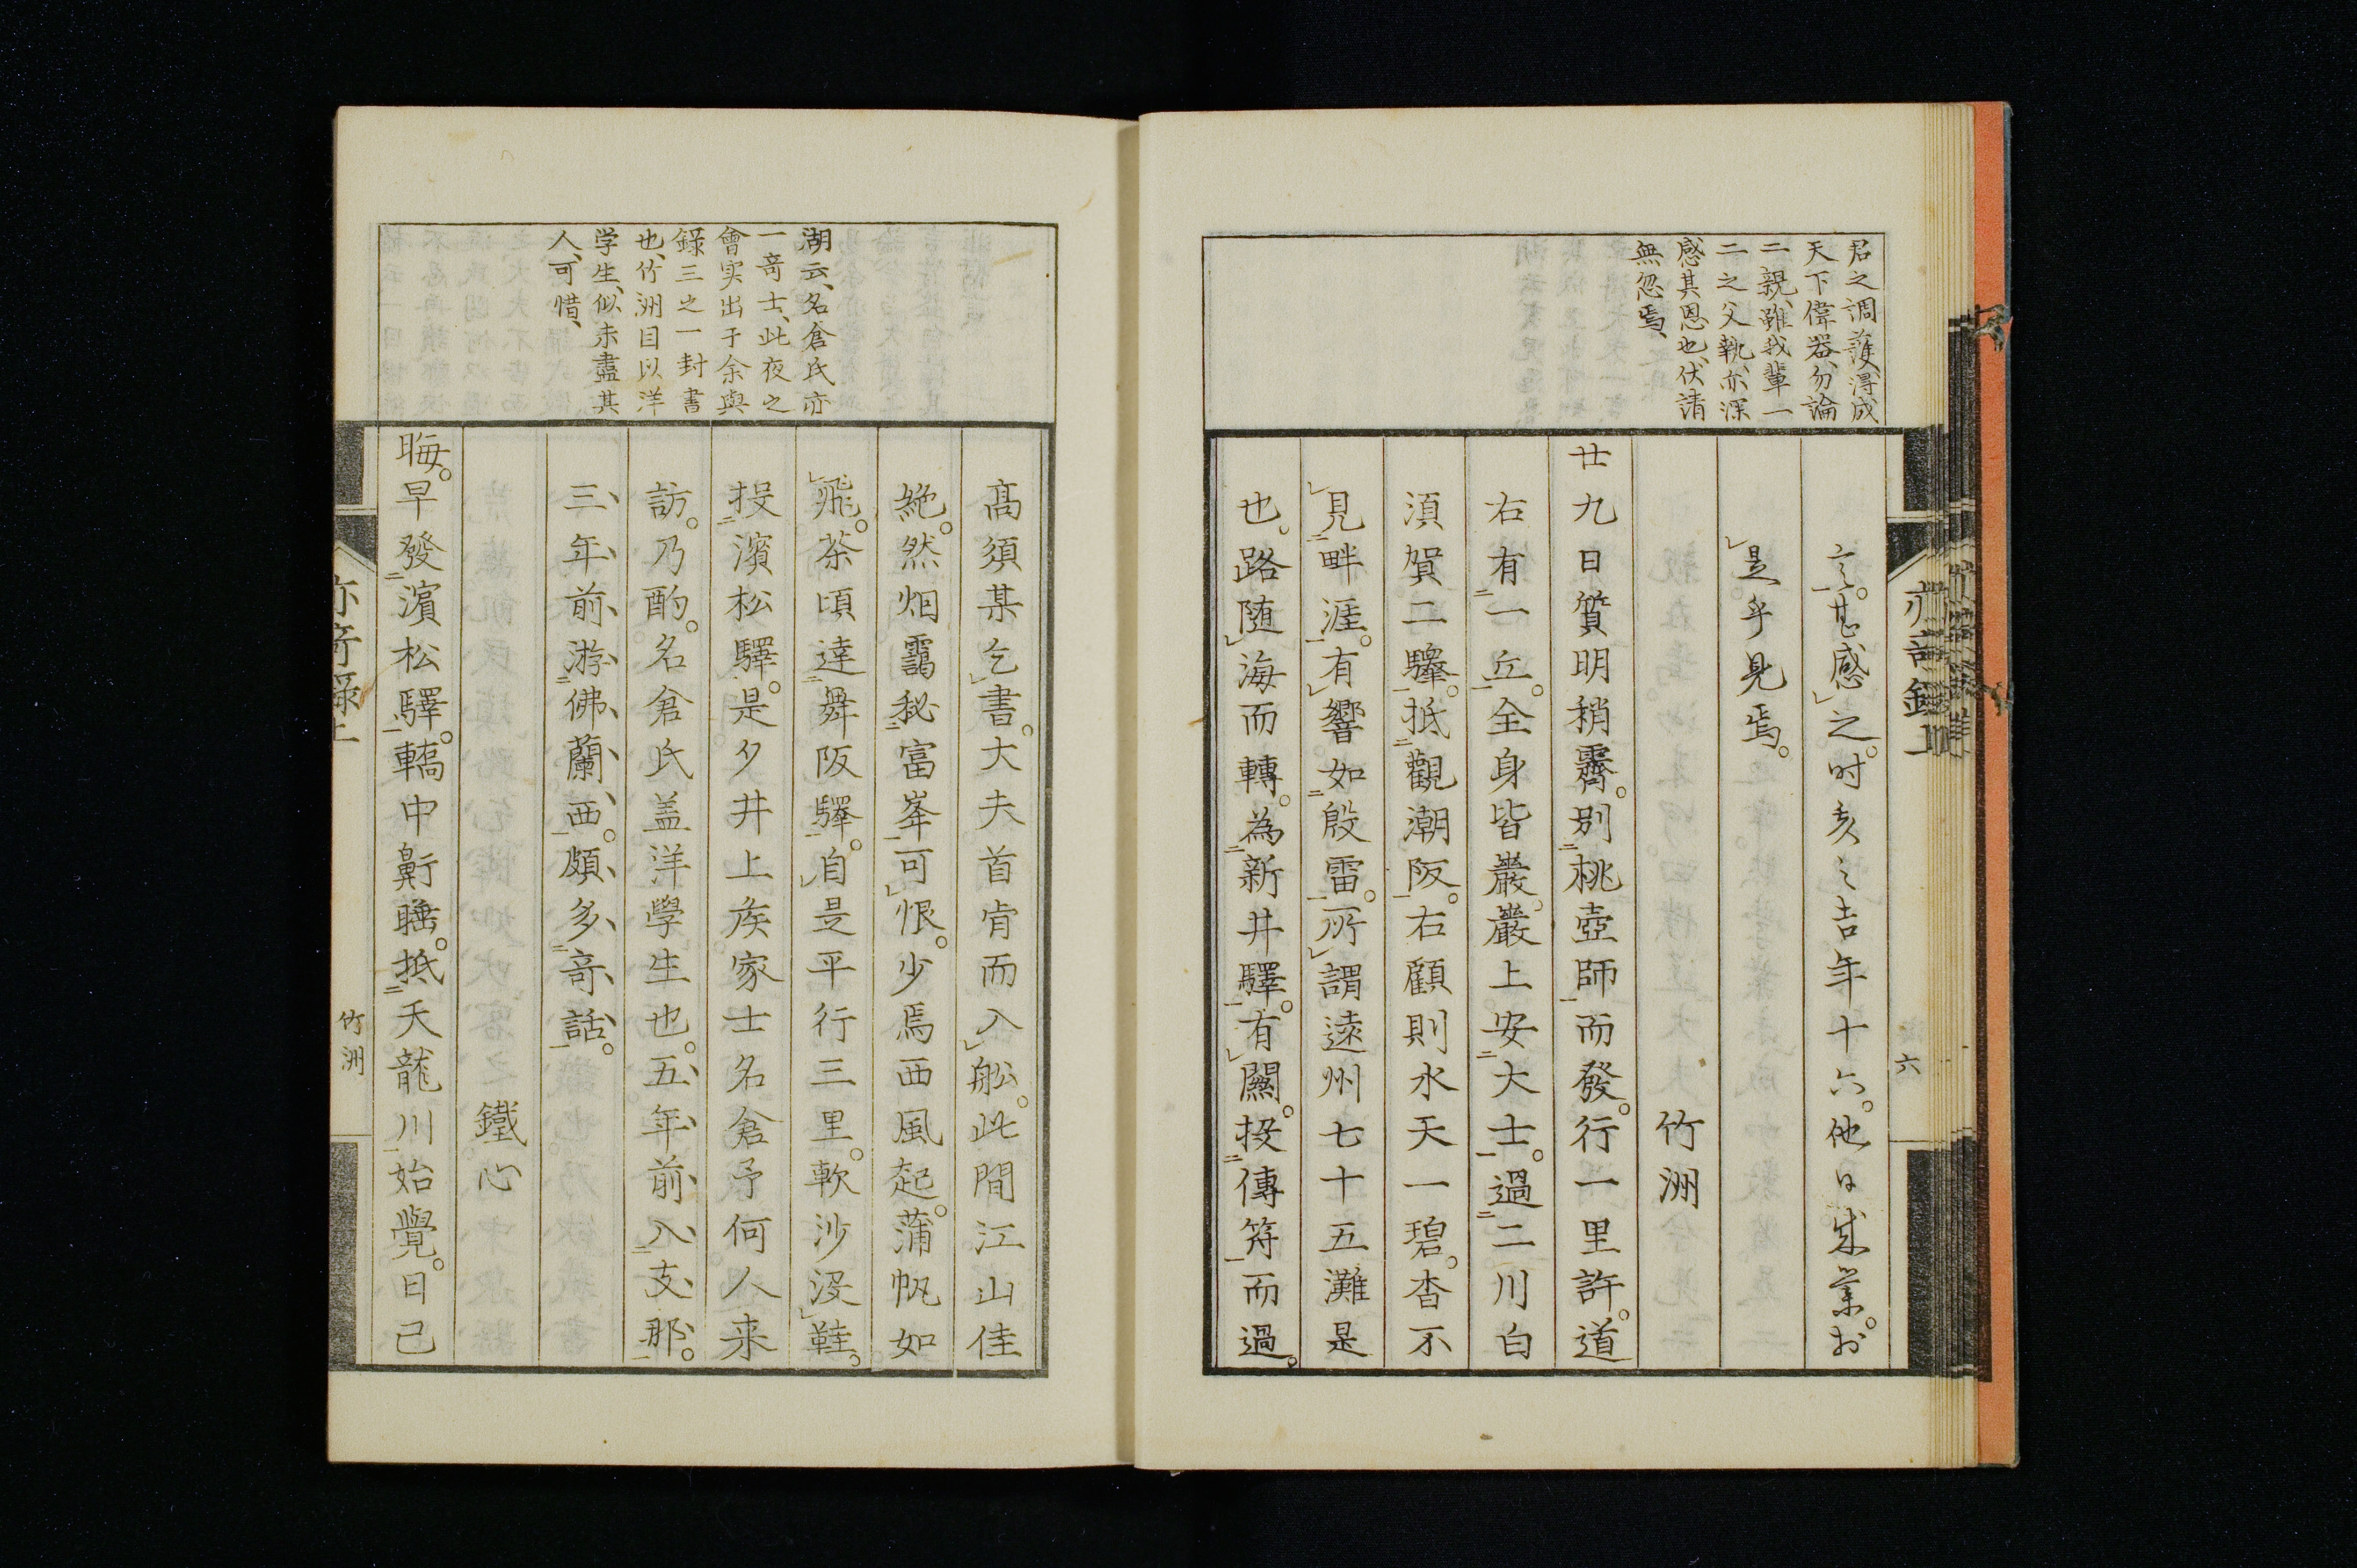 君之調護、得成
天下偉器、勿論
二親、雖我輩一
二之父執、亦深
感其恩也、伏請
無忽焉、
言。甚感之。时亥之吉年十六。他日成業。於
是乎見焉。
竹洲
廿九日質明稍霽。別桃壺師而發。行一里許。道
右有一丘。全身皆巖。巖上安大士。過二川白
須賀二驛。抵觀潮阪。右顧則水天一碧。杳不
見畔涯。有響如殷雷。所謂遠州七十五灘是
也。路随海而轉。為新井驛。有關。投傳符而過。
亦奇録上
六
湖云、名倉氏亦
一奇士、此夜之
會実出于余與
錄三之一封書
也、竹洲目以洋
学生、似未盡其
人、可惜、
髙須某乞書。大夫首肯而入舩。此間江山佳
絶。然烟靄秘富峯可恨。少焉西風起。蒲帆如
飛。茶頃達舞阪驛。自是平行三里。軟沙没鞋。
投濱松驛。是夕井上矦家士名倉予何人来
訪。乃酌。名倉氏盖洋學生也。五年前入支那。
三年前游佛蘭西。頗多奇話。
鐵心
晦。早發濱松驛。轎中鼾睡。抵天龍川始覺。日已
亦奇録上
竹洲